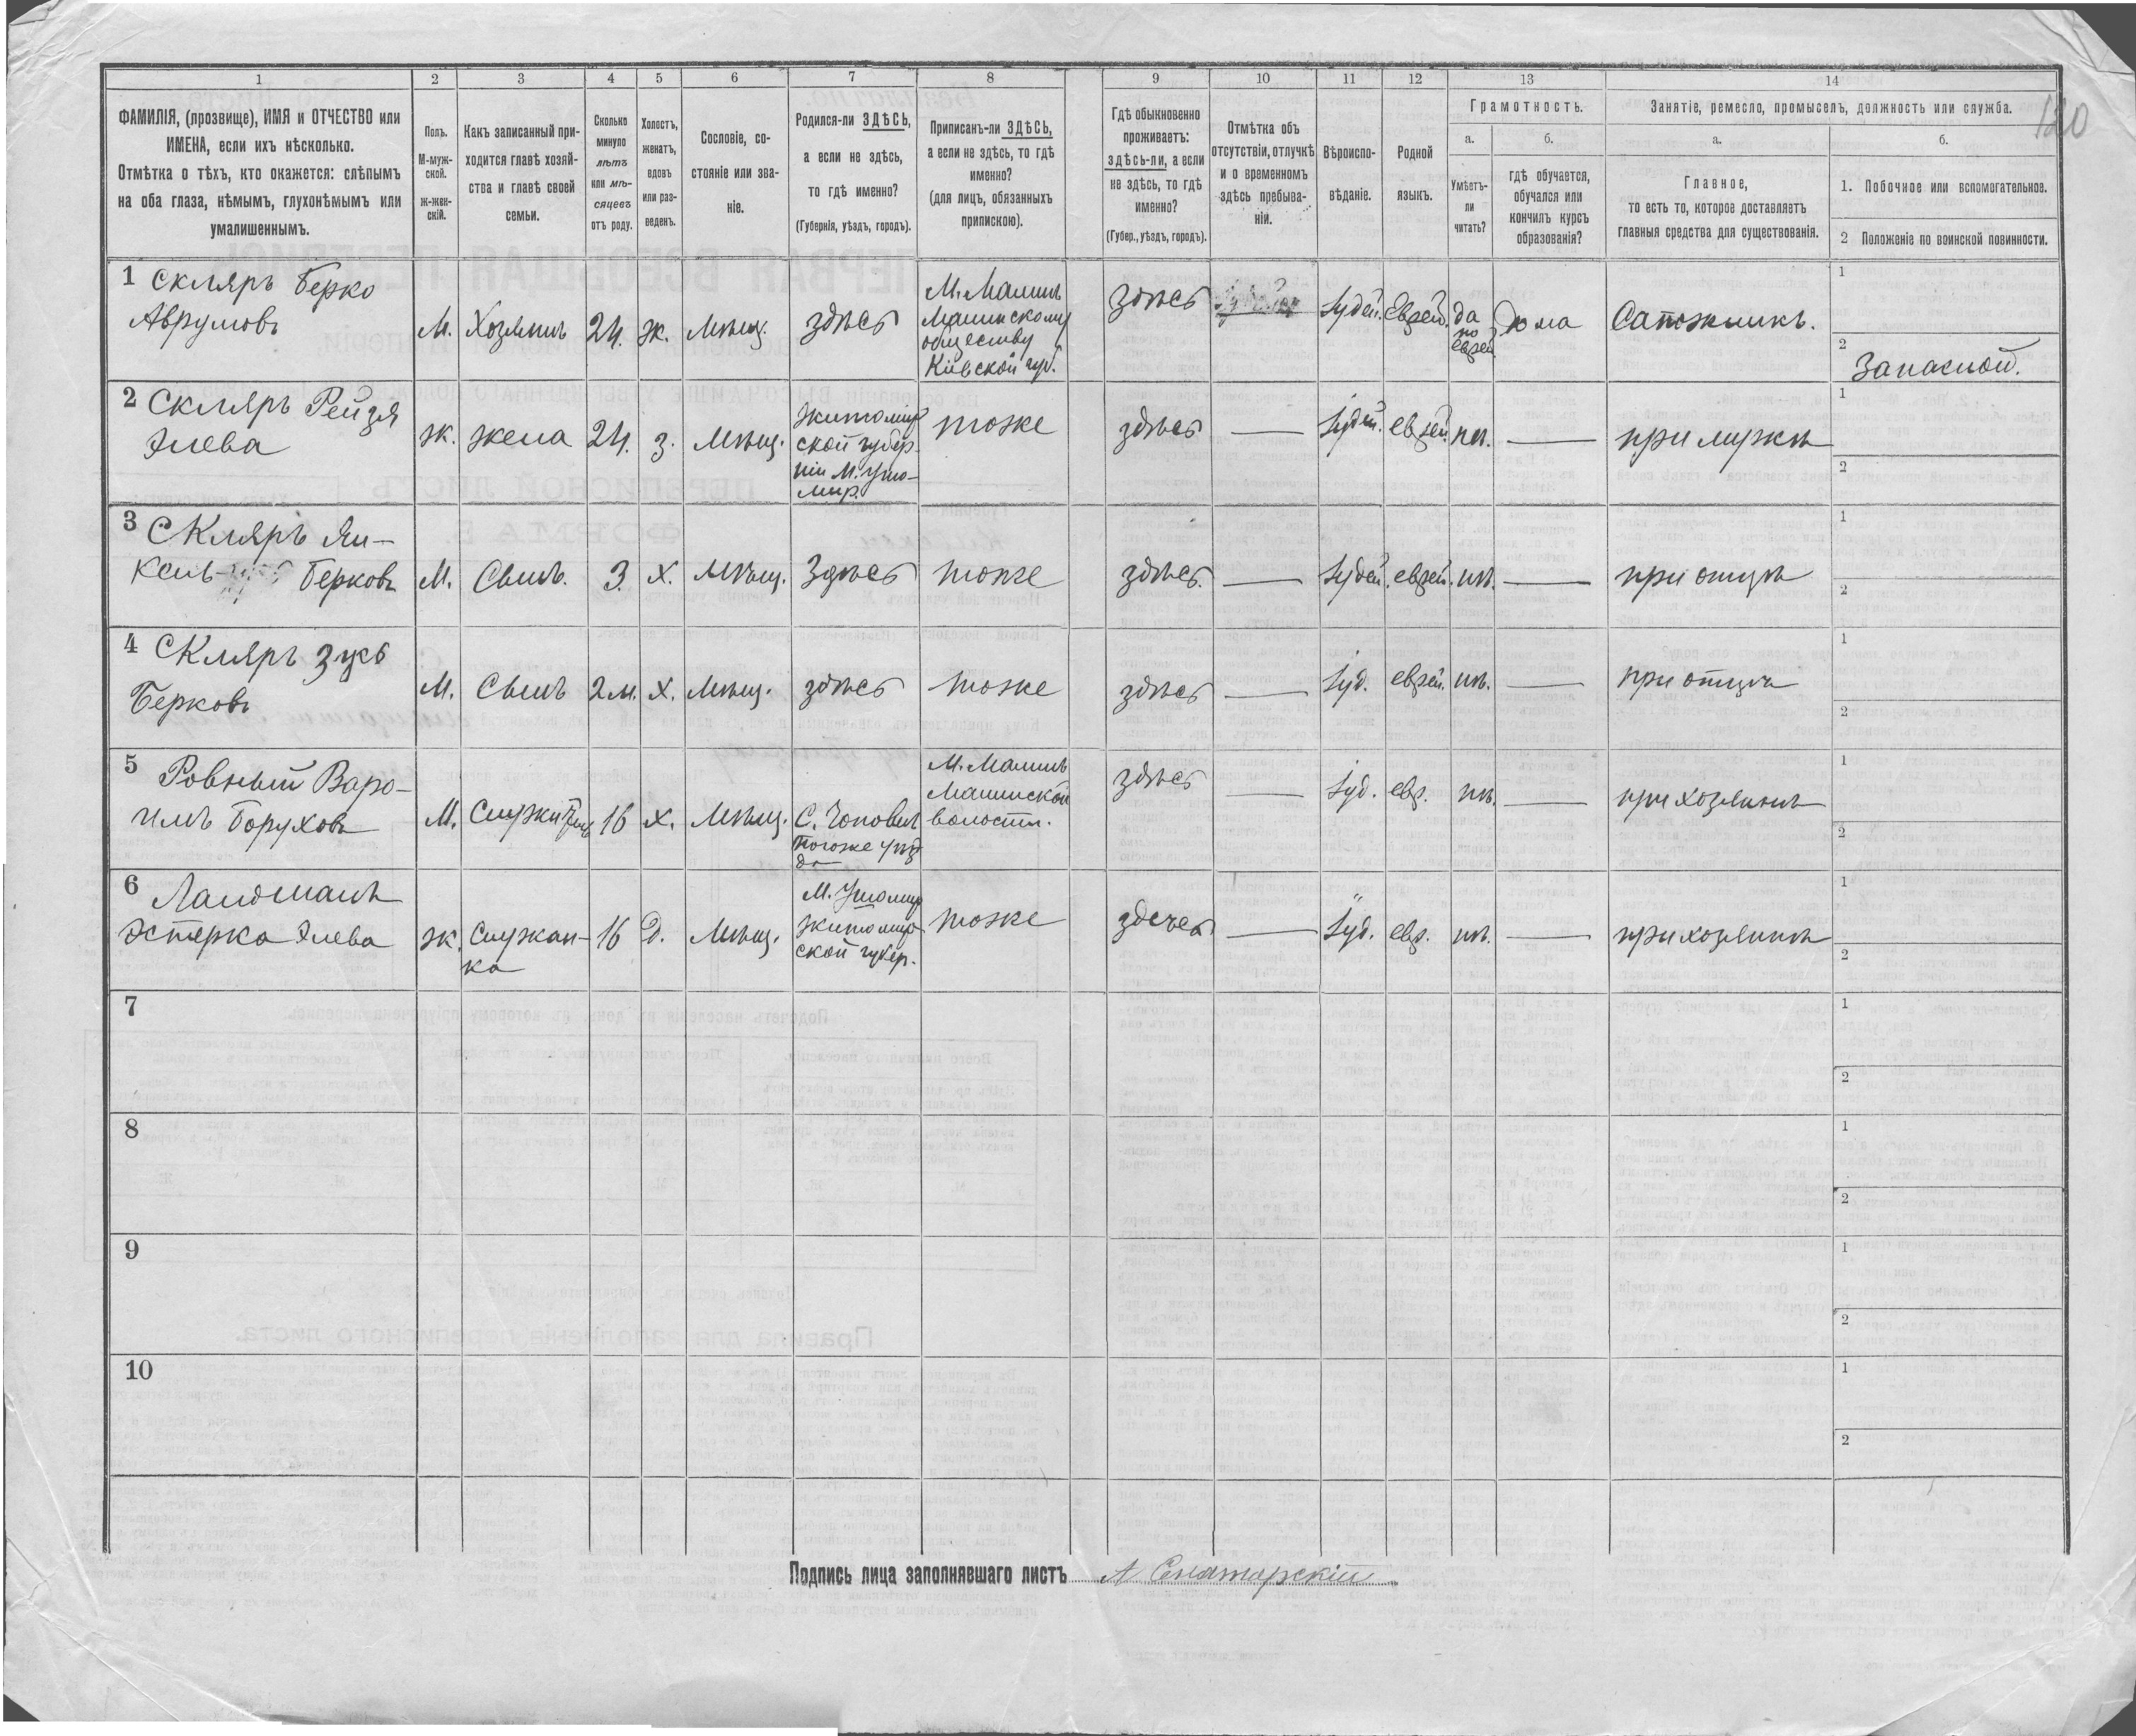 1 2 3 4 5 6 7 8 9 10 11 12 13 14
120
ФАМИЛІЯ, (прозвище), ИМЯ и ОТЧЕСТВО или
ИМЕНА, если ихъ нѣсколько.
Отмѣтка о тѣхъ, кто окажется: слѣпымъ
на оба глаза, нѣмымъ, глухонѣмымъ или
умалишеннымъ.
Полъ.
М-муж-
ской.
Ж-жен-
скій.
Какъ записанный при-
ходится главѣ хозяй-
ства и главѣ своей
семьи.
Сколько
минуло
лѣтъ
или мѣ-
сяцевъ
отъ роду.
Холостъ,
женатъ,
вдовъ
или раз-
веденъ.
Сословіе, со-
стояніе или зва-
ніе.
Родился-ли ЗДѢСЬ,
а если не здѣсь,
то гдѣ именно?
(Губернія, уѣздъ, городъ).
Приписанъ-ли ЗДѢСЬ,
а если не здѣсь, то гдѣ
именно?
(для лицъ, обязанныхъ
припискою).
Гдѣ обыкновенно
проживаетъ:
здѣсь-ли, а если
не здѣсь, то гдѣ
именно?
(Губер., уѣздъ, городъ).
Отмѣтка объ
отсутствіи, отлучкѣ
и о временномъ
здѣсь пребыва-
ніи.
Вѣроиспо-
вѣданіе.
Родной
языкъ.
Грамотность.
а.
Умѣетъ-
ли
читать?
б.
гдѣ обучается,
обучался или
кончилъ курсъ
образованія?
Занятіе, ремесло, промыселъ, должность или служба.
а.
Главное,
то есть то, которое доставляетъ
главныя средства для существованія.
б.
1. Побочное или вспомогательное.
2 Положеніе по воинской повинности.
1 Скляръ Берко
Аврумовъ
М.
Хозяинъ
24.
ж.
Мѣщ.
здѣсь
М. Малинъ
Малинскому
обществу
Кіевской губ.
здѣсь
Іудей.
Еврей.
да
по
еврей
дома
Сапожникъ.
1
2
Запасной.
2 Скляръ Рейзя
Элева
ж.
жена
24.
з.
Мѣщ.
Житомир
ской губер-
ніи М. Ушо-
мир.
тоже
здѣсь
—
Іудей.
еврей.
нѣ.
—
при мужѣ
1
2
3 Скляръ Ян-
кель Берковъ
М.
Сынъ.
3.
Х.
Мѣщ.
Здѣсь
тоже
здѣсь.
—
Іудей.
еврей.
нѣ.
—
при отцѣ
1
2
4 Скляръ Зусь
Берковъ
М.
Сынъ
2 м.
Х.
Мѣщ.
здѣсь
тоже
здѣсь
—
Іуд.
еврей.
нѣ.
—
при отцѣ
1
2
5 Ровный Варо-
М.
16
Х.
Мѣщ.
С. Чоповичъ
тогоже уѣз
да
М. Малинъ
Малинской
волости.
здѣсь
—
Іуд.
евр.
нѣ.
—
при хозяинѣ
1
2
6 Ландманъ
Эстерка Элева
ж.
Служан-
ка
16
Д.
Мѣщ.
М. Ушомир
Житомир
ской губер.
тоже
—
Іуд.
евр.
нѣ.
—
при хозяинѣ
1
2
7
1
2
8
1
2
9
1
2
10
1
2
Подпись лица заполнявшаго листъ